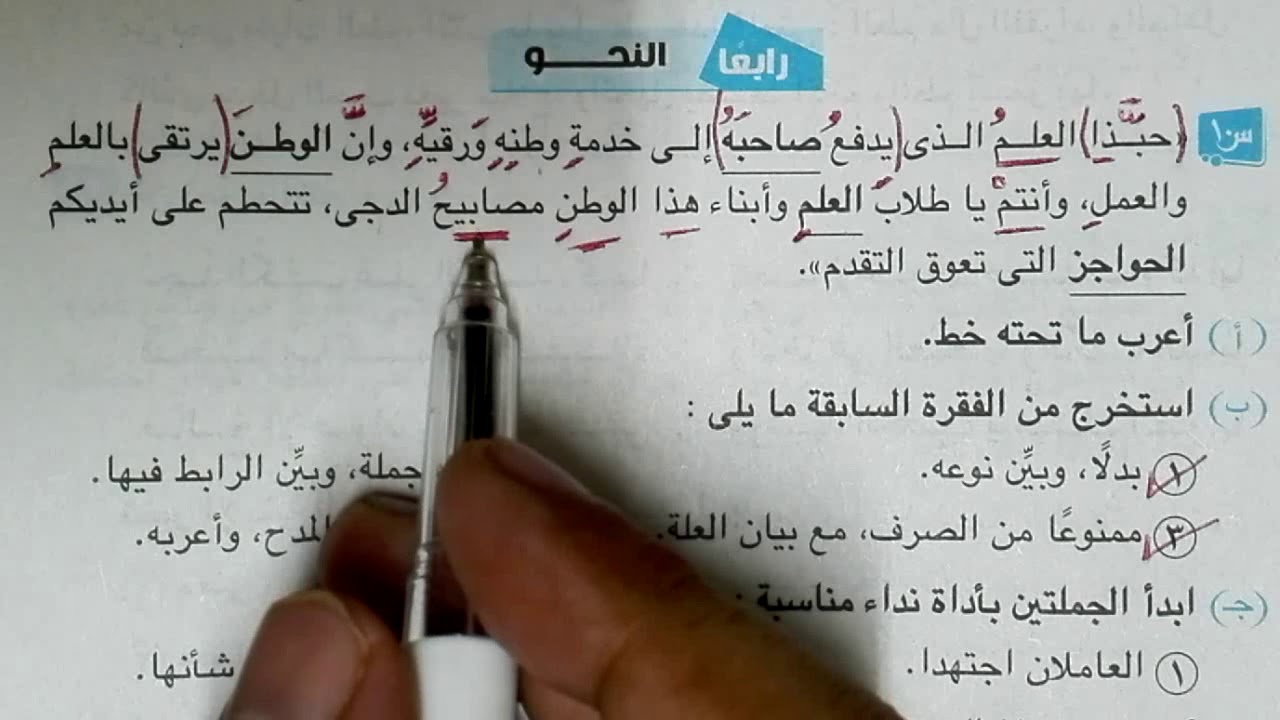 رابعًا النحـــو
س١ «حبَّذا العلمُ الـذى يدفعُ صاحبَهُ إلـى خدمةِ وطنِهِ وَرقيِّهِ، وإنَّ الوطـنَ يرتقى بالعلمِ
والعملِ، وأنتمْ يا طلابَ العلمِ وأبناء هذا الوطنِ مصابيحُ الدجى، تتحطم على أيديكم
الحواجز التى تعوق التقدم».
(أ) أعرب ما تحته خط.
(ب) استخرج من الفقرة السابقة ما يلى :
١ بدلًا، وبيِّن نوعه. جملة، وبيِّن الرابط فيها.
٣ ممنوعًا من الصرف، مع بيان العلة. المدح، وأعربه.
(جـ) ابدأ الجملتين بأداة نداء مناسبة :
١ العاملان اجتهدا. شأنها.